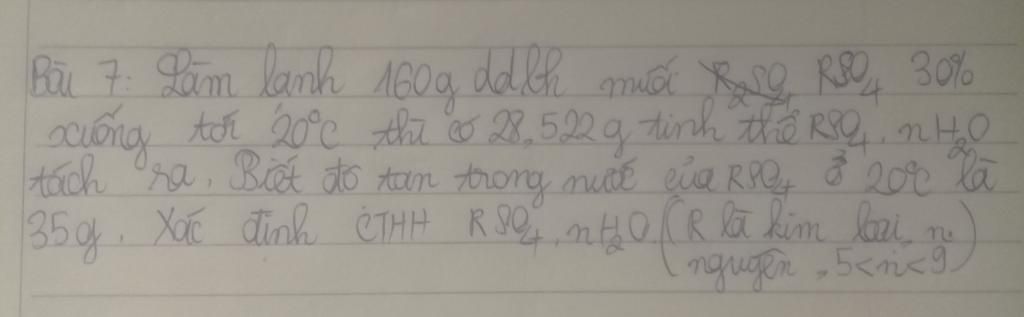 Bài 7: Làm lạnh 160g ddbh muối RSO₄ 30%
xuống tới 20°C thì có 28,522g tinh thể RSO₄.nH₂O
tách ra. Biết độ tan trong nước của RSO₄ ở 20°C là
35g. Xác định CTHH RSO₄.nH₂O (R là kim loại, n
nguyên, 5<n<9)